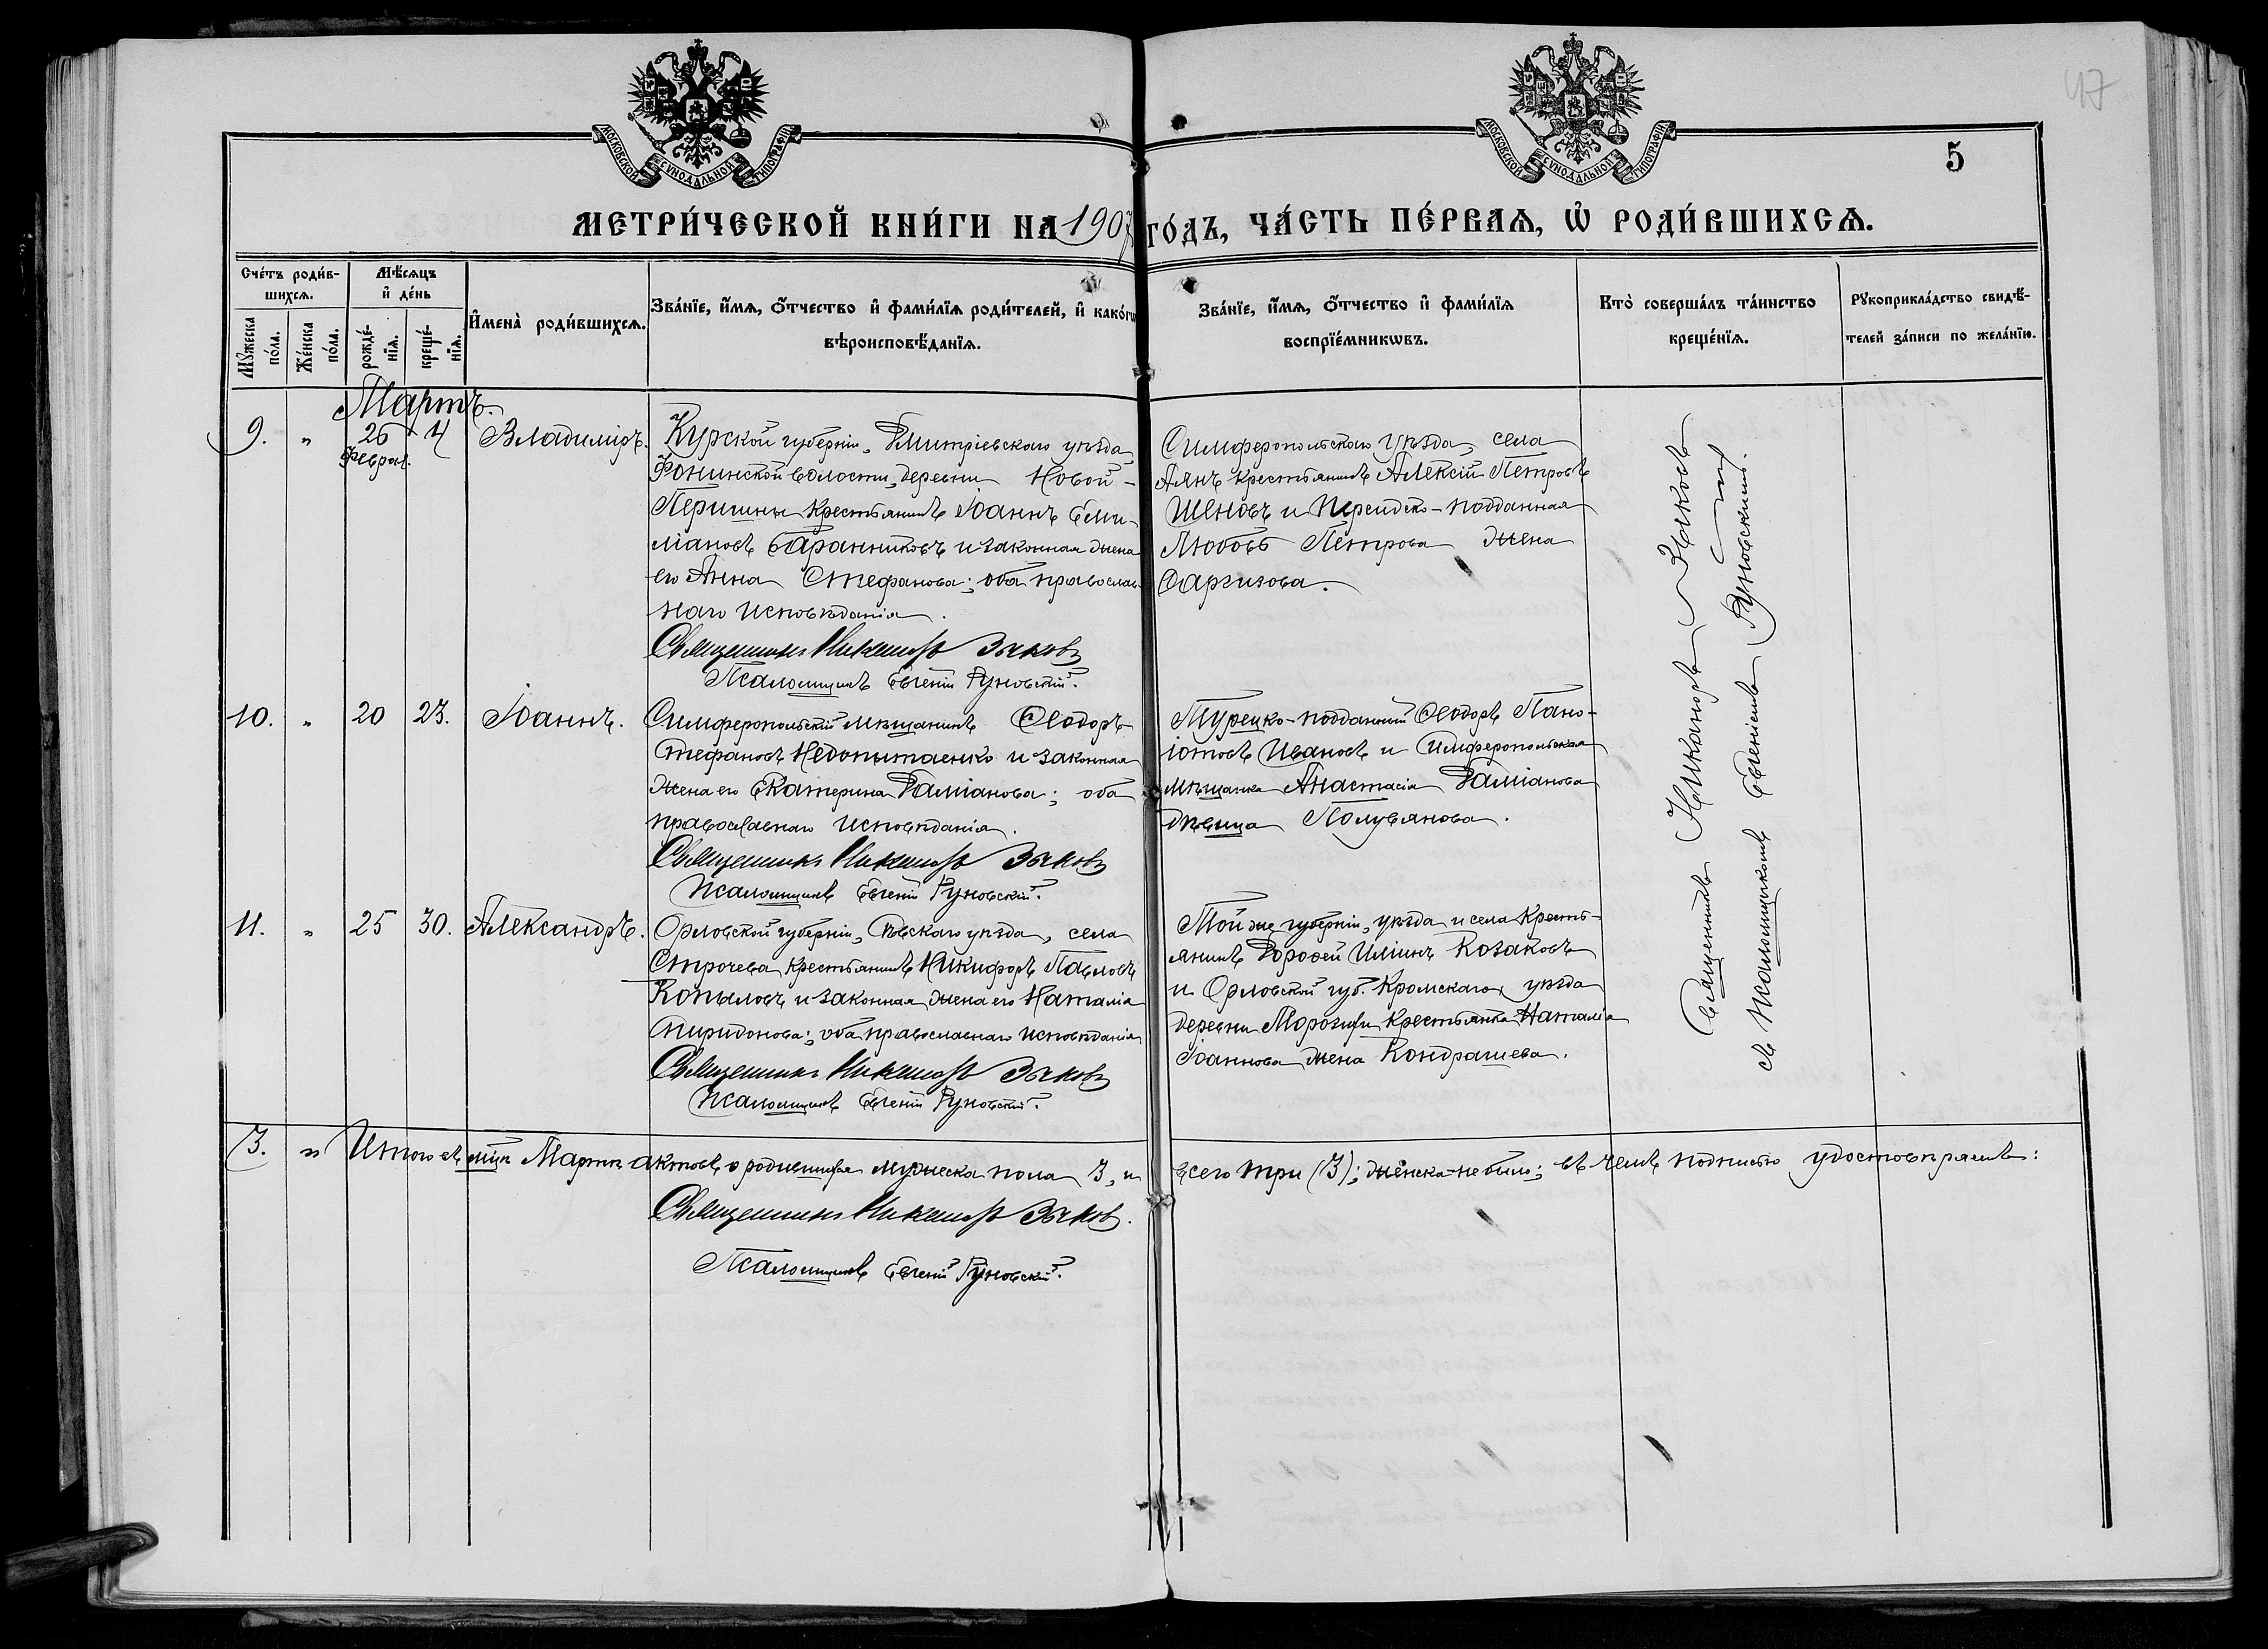 47
МОСКОВСКОЙ СѴНОДАЛЬНОЙ ТИПОГРАФІИ
МОСКОВСКОЙ СѴНОДАЛЬНОЙ ТИПОГРАФІИ
5
МЕТРИ́ЧЕСКОЙ КНИ́ГИ НА 1907 ГО́ДЪ, ЧА́СТЬ ПЕ́РВАѦ, Ѡ҆ РОДИ́ВШИХСѦ.
Сче́тъ роди́в-
шихсѧ.
Мꙋ́жеска
по́ла.
Же́нска
по́ла.
Мѣ́сѧцъ
и҆ де́нь
рожде́-
нїѧ.
креще́-
нїѧ.
И҆мена̀ роди́вшихсѧ.
Зва́нїе, и҆́мѧ, ѻ҆́тчество и҆ фами́лїѧ роди́телей, и҆ како́гѡ
вѣроисповѣ́данїѧ.
Зва́нїе, и҆́мѧ, ѻ҆́тчество и҆ фами́лїѧ
воспрїе́мникѡвъ.
Кто̀ соверша́лъ та́инство
креще́нїѧ.
Рꙋкоприкла́дство свидѣ́-
телей за́писи по жела́нїю.
Мартъ.
9. " 26 Феврал. 4 Владиміръ.
Курской губерніи, Дмитріевскаго уѣзда,
Фонинской волости, деревни Новой-
Першины крестьянинъ Іоаннъ Еми-
ліановъ Баранниковъ и законная жена
его Анна Стефанова; оба православ-
наго исповѣданія.
Священникъ Никаноръ Зыковъ
Псаломщикъ Евгеній Руновскій.
Симферопольскаго уѣзда, села
Аянъ крестьянинъ Алексій Петровъ
Шеновъ и персидско-подданная
Любовь Петрова жена
Саргизова.
10. " 20 23. Іоаннъ.
Симферопольскій мѣщанинъ Ѳеодоръ
Стефановъ Недопытаенко и законная
жена его Екатерина Даміанова; оба
православнаго исповѣданія.
Священникъ Никаноръ Зыковъ
Псаломщикъ Евгеній Руновскій.
Турецко-подданный Ѳеодоръ Пано-
іотовъ Ивановъ и Симферопольская
мѣщанка Анастасія Даміанова
дѣвица Полуянова.
11. " 25 30. Александръ.
Орловской губерніи, Сѣвскаго уѣзда, села
Строчева крестьянинъ Никифоръ Павловъ
Копыловъ и законная жена его Наталія
Спиридонова; оба православнаго исповѣданія
Священникъ Никаноръ Зыковъ
Псаломщикъ Евгеній Руновскій.
Той же губерніи, уѣзда и села кресть-
янинъ Дороѳей Иліинъ Козаковъ
и Орловской губ. Кромскаго уѣзда
деревни крестьянка Наталія
Іоаннова жена Кондрашева.
Священникъ Никаноръ Зыковъ
съ псаломщикомъ Евгеніемъ Руновскимъ.
3. " Итого въ мцѣ Мартѣ актовъ о родившихся мужеска пола 3, и всего три (3); женска-не было; въ чемъ подписью удостовѣряемъ:
Священникъ Никаноръ Зыковъ.
Псаломщикъ Евгеній Руновскій.